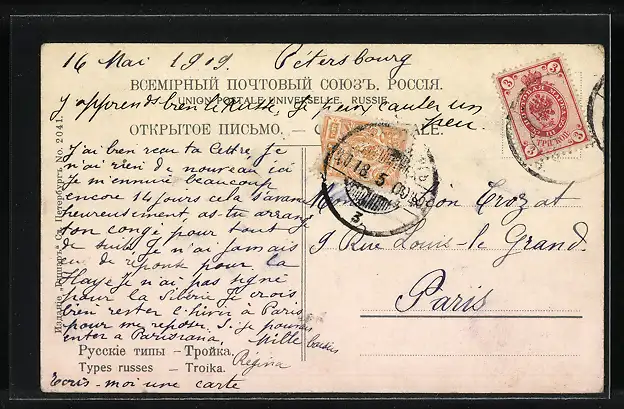 16 Mai 1909. Pétersbourg
ВСЕМІРНЫЙ ПОЧТОВЫЙ СОЮЗЪ. РОССІЯ.
UNION POSTALE UNIVERSELLE. RUSSIE.
J'apprends bien le Russe, je puis causer un
peu.
ОТКРЫТОЕ ПИСЬМО. —
J'ai bien reçu ta lettre, je
n'ai rien de nouveau ici
Je m'ennuie beaucoup
encore 14 jours cela s'avance
heureusement, as-tu arrangé
ton congé pour tout
de suite Je n'ai jamais
eu de réponse pour la
Haye Je n'ai pas signé
pour la Sibérie Je crois
bien rester l'hiver à Paris
pour me reposer. Si je pouvais
entrer à Parisiana, Mille baisers
Régina
Ecris-moi une carte
Léon Crozat
9 Rue Louis-le Grand.
Paris
Русскіе типы — Тройка.
Types russes — Troïka.
Изданіе „Ришаръ“ Ст. Петербургъ. No. 2041.
3
3
3
3
18 5 09
3